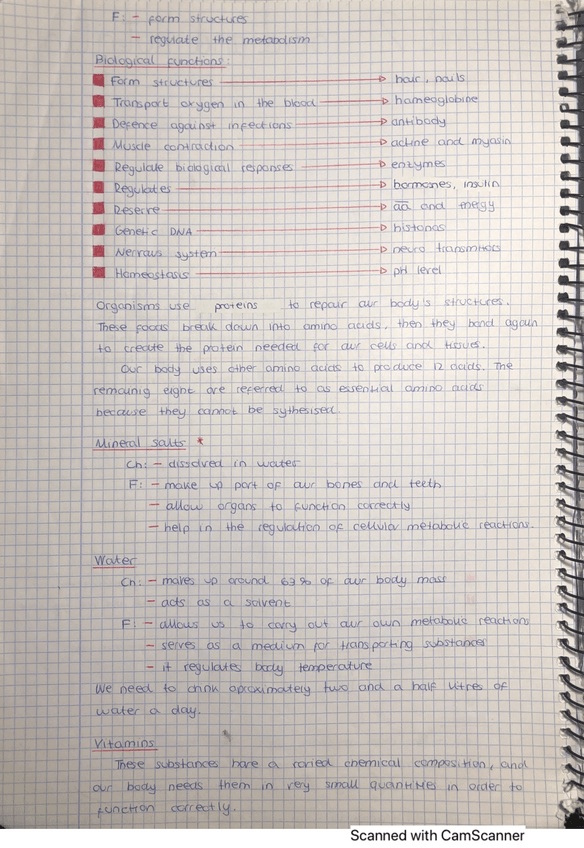 F: - form structures
- reguate the metabolism
Biological functions:
Form structures → hair, nails
Transport oxygen in the blood → hameoglobine
Defence against infections → antibody
Muscle contraction → actine and myosin
Regulate biological reponses → enzymes
Regulates → hormones, insulin
Reserve → aa and energy
Genetic DNA → histonas
Nervous system → neuro transmitors
Homeostasis → pH level
Organisms use proteins to repair our body's structures.
These foods break down into amino acids, then they bond again
to create the protein needed for our cells and tissues.
Our body uses other amino acids to produce 12 acids. The
remaining eight are referred to as essential amino acids
because they cannot be sythesised.
Mineral salts *
Ch: - dissolved in water
F: - make up part of our bones and teeth
- allow organs to function correctly
- help in the regulation of cellular metabolic reactions.
Water
Ch: - makes up around 63% of our body mass
- acts as a solvent
F: - allows us to carry out our own metabolic reactions
- serves as a medium for transporting substances
- it regulates body temperature
We need to drink aproximately two and a half litres of
water a day.
Vitamins
These substances have a varied chemical composition, and
our body needs them in very small quantities in order to
function correctly.
Scanned with CamScanner